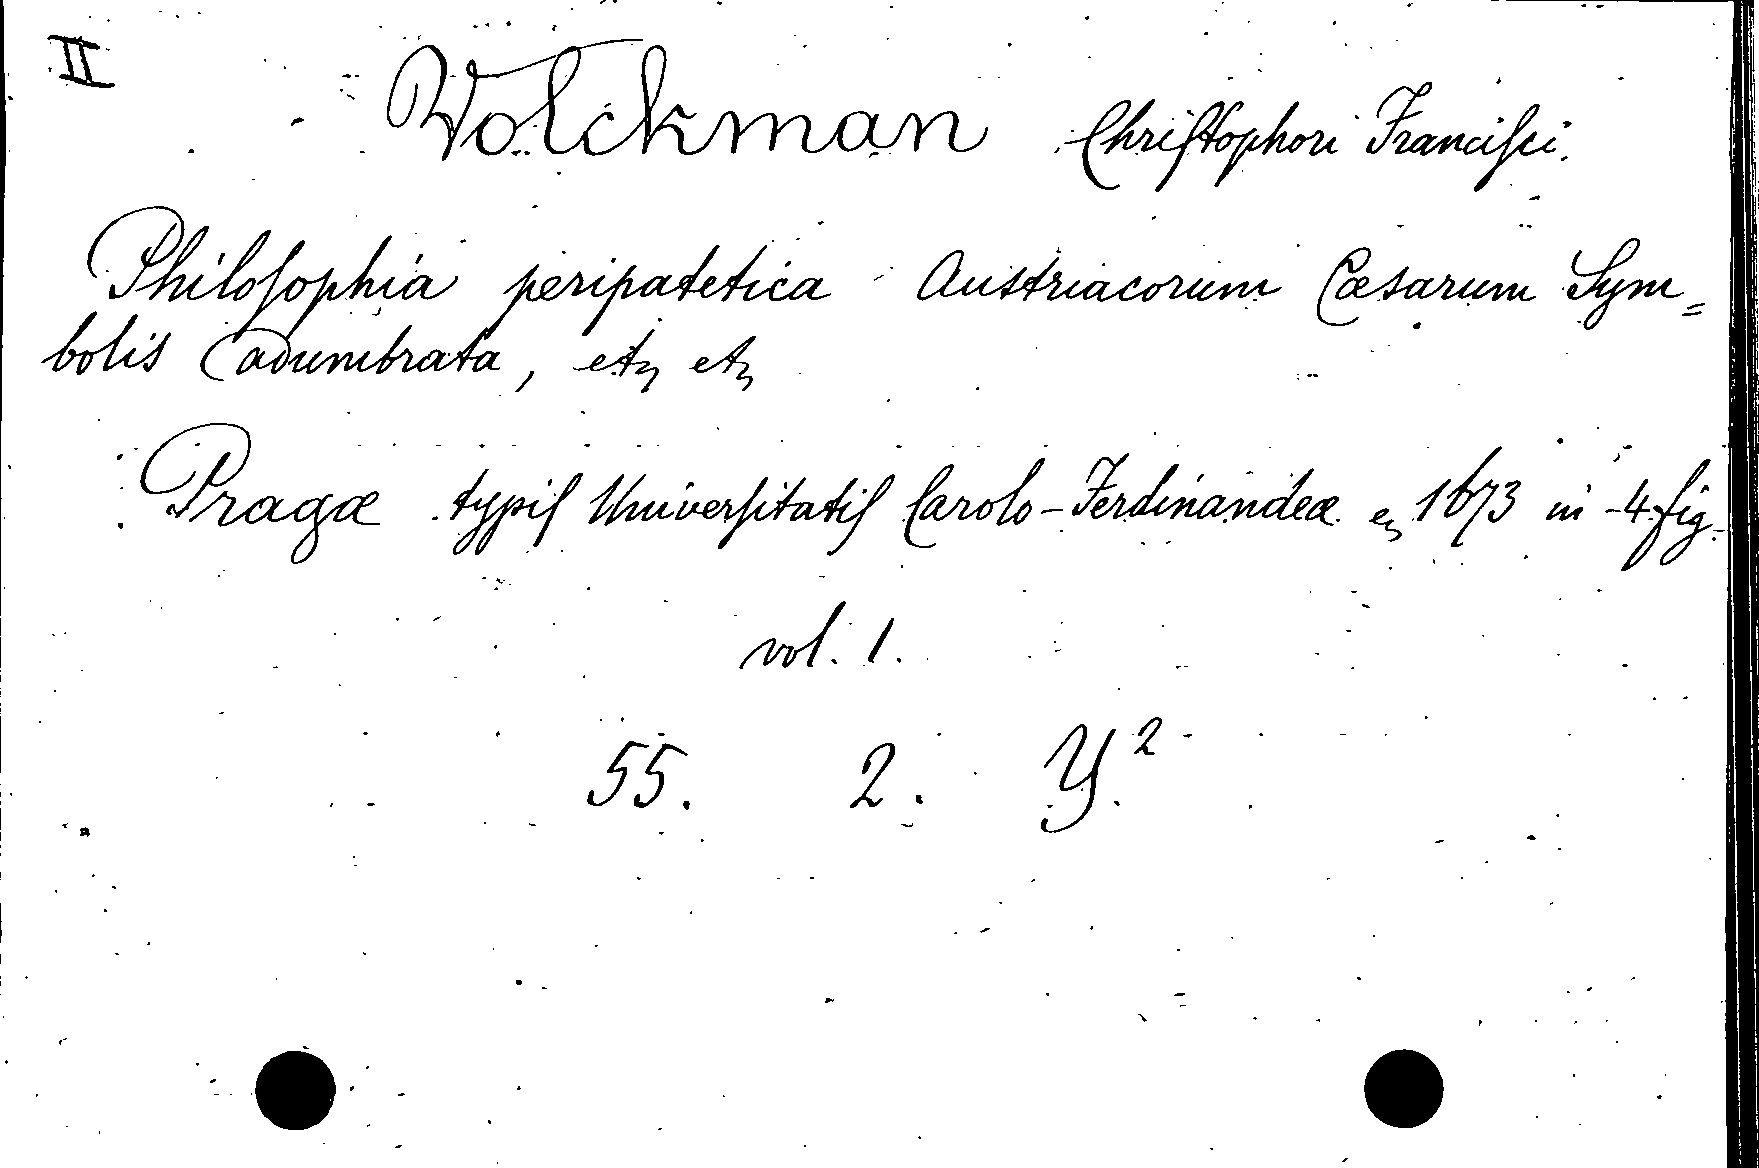 II
Volckman Chriſtophori Franciſci.
Philoſophia peripatetica Austriacorum Cæsarum Sym=
bolis adumbrata, etz etz
Pragæ typiſ Univerſitatiſ Carolo-Ferdinandeæ ez 1673 in-4. fig.
vol. 1.
55. 2. Y.²